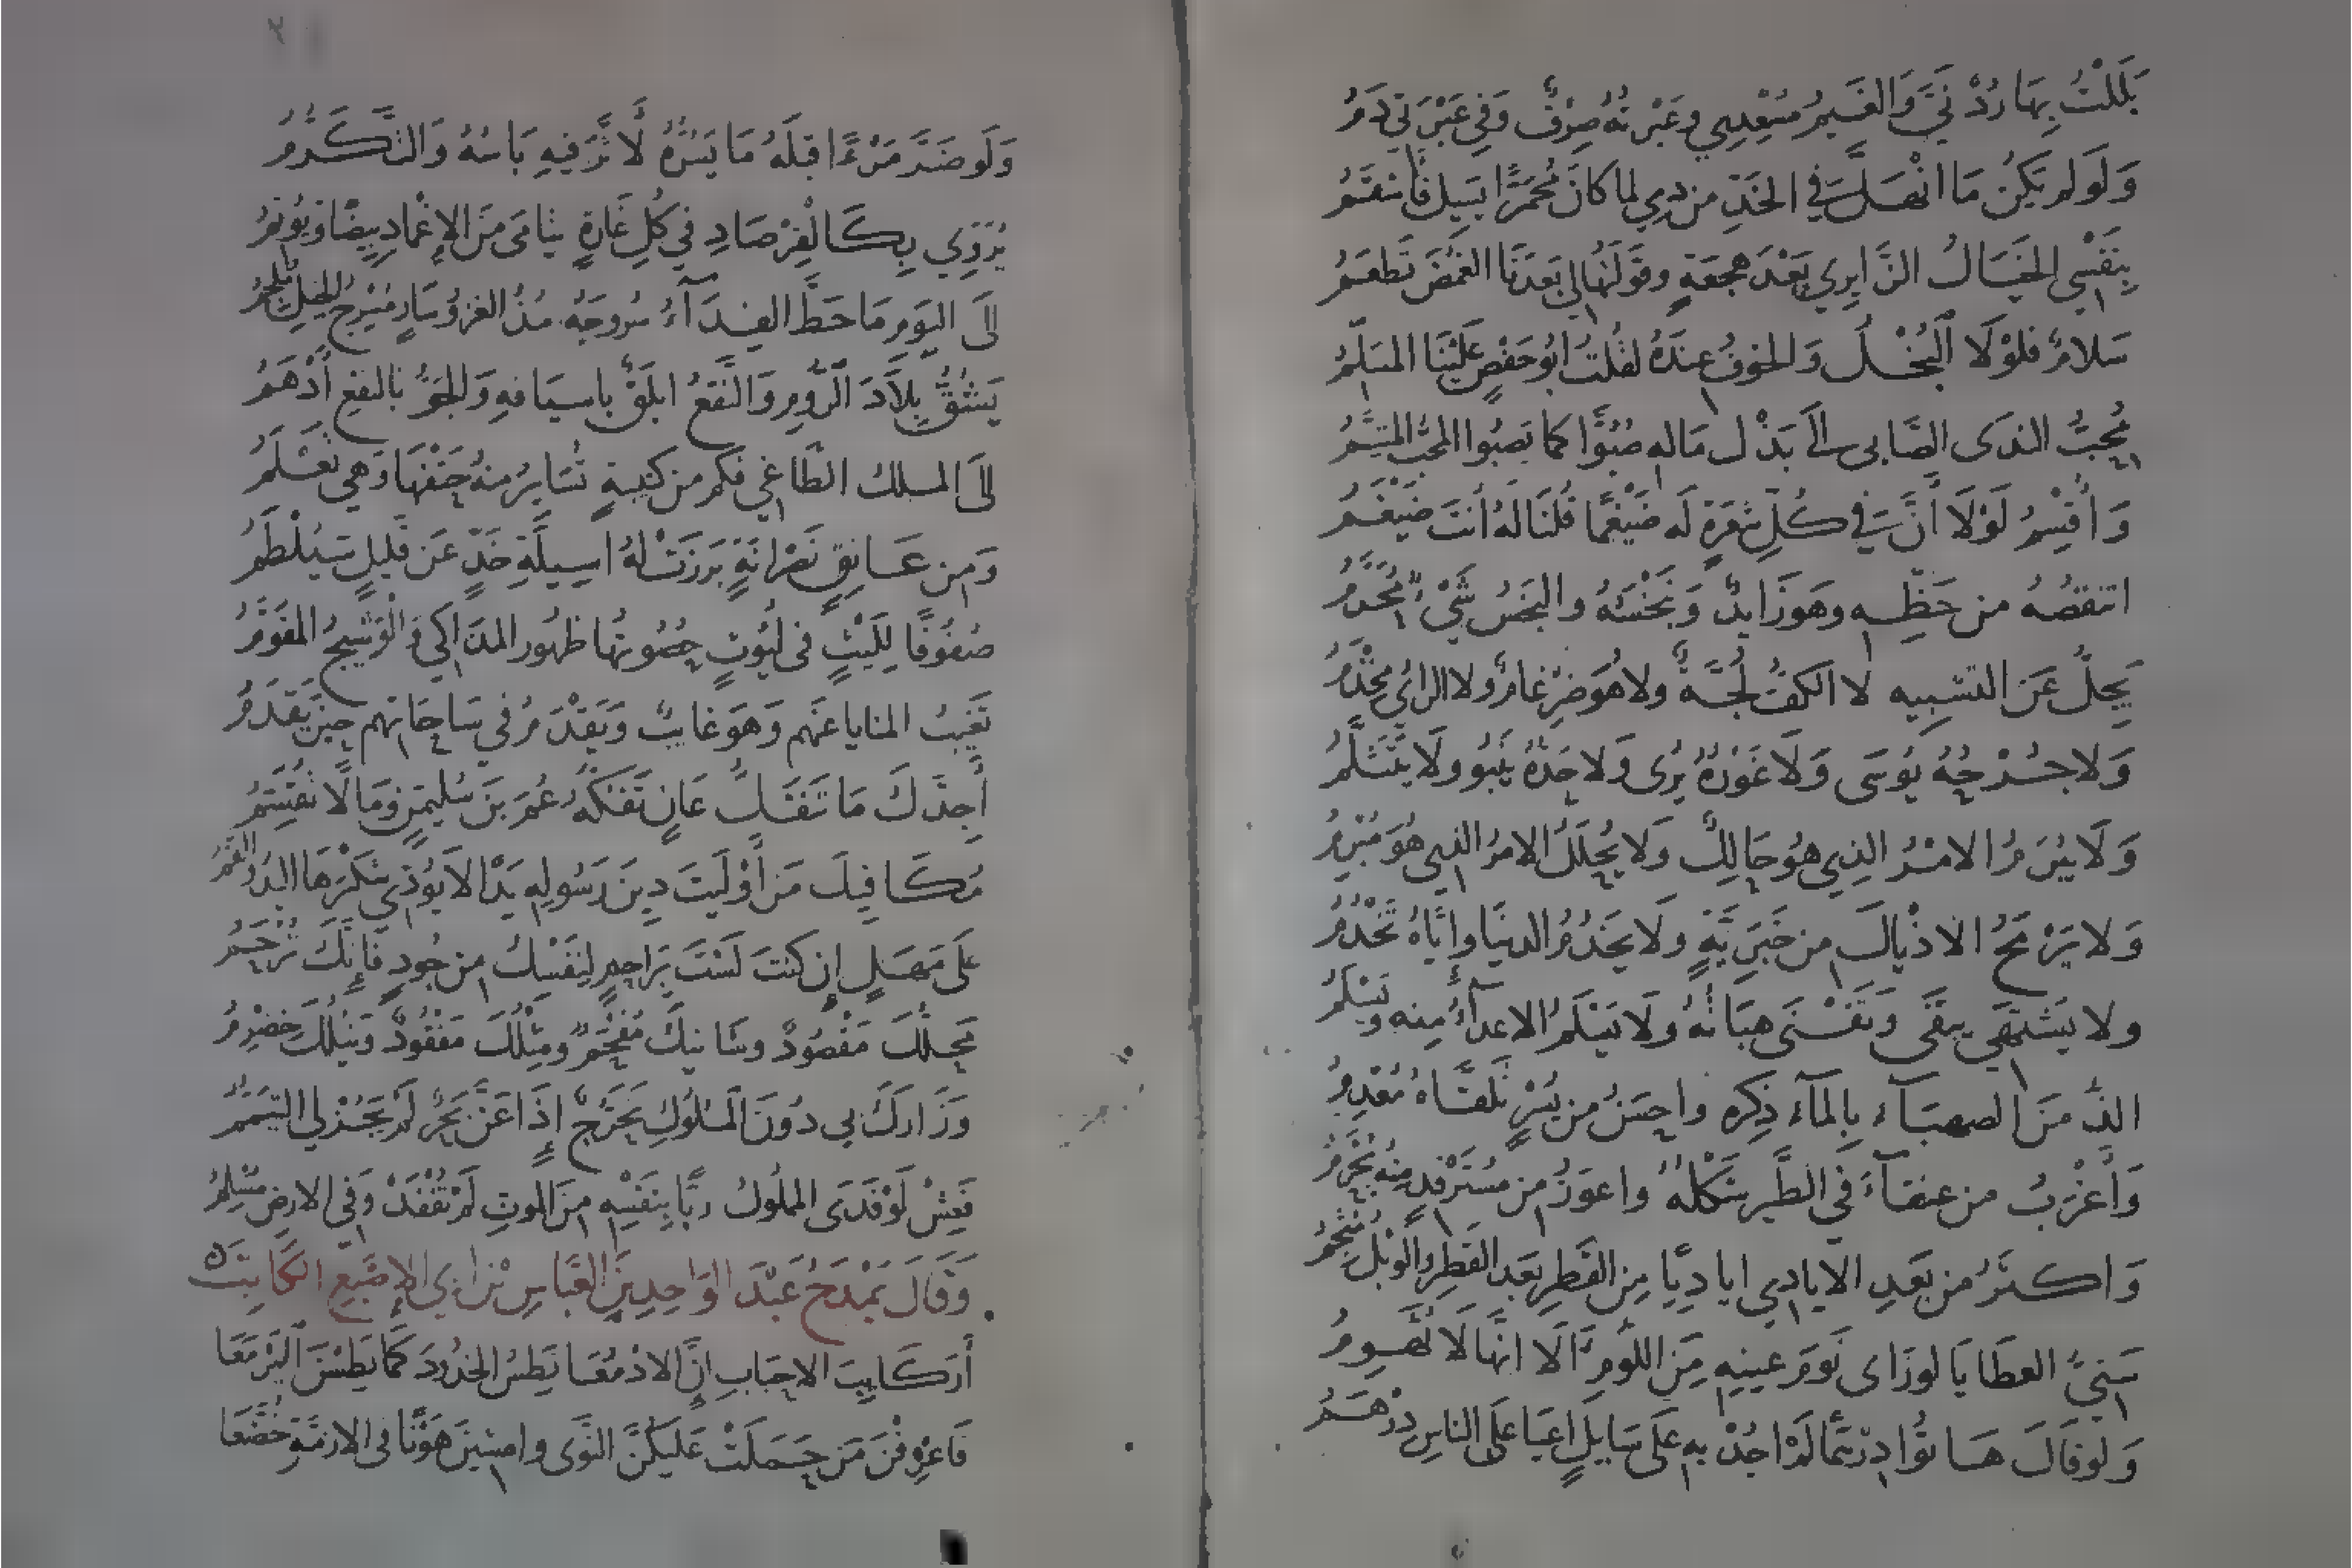 بَلَلْتُ بِهَا رُدْنَيَّ وَالغَيمُ مُسْعِدِي وعَبْرتُهُ صِرْفٌ وَفي عَبْرَتي دَمُ
وَلَو لَم يَكُن مَا انْهَلَّ في الخَدِّ مِن دَمِي لما كانَ مُحْمَرًّا يَسِيلُ فَأسْقَمُ
بِنَفْسِي الخَيَالُ الزَّايِرِي بَعْدَ هجعَةٍ وقَولَتُهَا لي بَعدَنَا الغُمْضَ تَطعَمُ
سَلامٌ فلوْلَا البُخْلُ وَالخوفُ عندَهُ لقُلتُ ابُو حَفْصٍ عَلَيْنَا المسَلِّمُ
مُحِبُّ الندَى الصَّابي الَى بَذْلِ مَالِهِ صُبُوًّا كما يَصبُوا المحبُّ المتَيَّمُ
وَأُقسِمُ لَوْلَا أنَّ في كُلِّ شَعرَةٍ لَه ضَيْغَمًا قُلنَا لَهُ أنتَ ضَيْغَمُ
اتنقصُهُ من حَظِّهِ وهوَ زَايدٌ وَنَبْخَسُهُ والبَخسُ شَيْءٌ مُحَرَّمُ
يَجِلُّ عَنِ التشبِيهِ لا الكَفُّ لُجَّةٌ ولا هُوَ ضِرْغامٌ ولا الرائُ مِخْذَمُ
وَلا جُرْحُهُ يُوسَى وَلَا غَوْرُهُ يُرَى وَلا حَدُّهُ يَنبُو ولَا يَتَثَلَّمُ
وَلَا يُبْرَمُ الامْرُ الذِي هُوَ حَالِلٌ وَلا يُحْلَلُ الامرُ الذِي هُوَ مُبْرِمُ
وَلا يَرْمَحُ الاذْيَالَ مِن جَبَرِيَّةٍ ولَا يَخدُمُ الدنيَا وإيَّاهُ تَخْدُمُ
ولا يَشْتَهِي يَبقَى وَتَفْنَى هِبَاتُهُ ولَا يَسْلَمُ الاعدآءُ مِنه وَيَسْلَمُ
الذُّ مِنَ الصهبَآءِ بِالمآءِ ذِكرُه واحسَنُ مِن يُسْرٍ تَلَقَّاهُ مُعْدِمُ
وَأغْرَبُ من عنقآءَ في الطَّيرِ شَكْلُهُ واعوَزُ مِن مُسْتَرْفِدٍ مِنهُ يُحْرَمُ
وَاكثَرُ مِن بَعدِ الايادِي اياديًا مِنَ القَطرِ بَعدَ القَطرِ والوَبْلُ مُثْجِمُ
سَنيُّ العطَايَا لو رَاى نَومَ عَينِهِ مِنَ اللُّومِ آلَا انهَا لَا تُهَوِّمُ
وَلو قَالَ هَاتُوا دِرْهَمًا لَمْ اجُدْ بِهِ عَلَى سَايلٍ اعيَا عَلَى الناسِ دِرْهَمُ
وَلَو ضَرَّ مَرْءًا قبلَهُ مَا يَسُرُّهُ لَأثَّرَ فيهِ بَاسُهُ وَالتَّكَرُّمُ
يُرَوِّي بِكَالْفِرْصَادِ في كُلِّ غَارةٍ يتَامَى مِنَ الإغْمادِ بِيضًا ويُوتِمُ
الَى اليَومِ مَا حَطَّ الفِدَآءُ سُروجَهُ مُذُ الغَزوُ سَارٍ مُسْرِجُ الخَيلِ مُلجِمُ
يَشُقُّ بِلَادَ الرُّومِ وَالنَّقعُ ابلَقٌ باسيَافهِ وَالجَوُّ بالنقعِ أدْهَمُ
الَى المَلكِ الطَّاغي فكم مِن كتيبةٍ تُسَايرُ مِنهُ حَتْفَهَا وَهي تَعْلَمُ
وَمِن عَاتِقٍ نَصْرَانةٍ بَرَزَتْ لهُ اسِيلَةِ خَدٍّ عَن قَليلٍ سَيُلْطَمُ
صُفُوفًا لِلَيْثٍ في لُيُوثٍ حُصُونُهَا ظهُورُ المذَاكي وَالْوَشِيجُ المقَوَّمُ
تَغيبُ المنايا عنهُم وَهوَ غايبٌ وَيَقْدَمُ في سَاحَاتِهِم حينَ يَقدَمُ
أجِدَّكَ مَا تَنفَكُّ عَانٍ تَفُكُّهُ عُمَرَ بنَ سُليمَنٍ ومَالًا تُقَسِّمُ
مُكَافِيكَ مَن أوْلَيتَ دِينَ رَسُولِهِ يَدًا لا يُؤدِّي شكْرَهَا اليَدُ والفَمُ
عَلَى مَهَلٍ إن كنتَ لَسْتَ بِرَاحِمٍ لِنَفسِكَ مِن جُودٍ فَإنكَ تُرْحَمُ
مَحِلُّكَ مَقْصُودٌ وشَانيكَ مُفْحَمٌ ومِثْلُكَ مَفْقُودٌ وَنَيلُكَ خِضْرِمُ
وَزَارَكَ بي دُونَ المُلُوكِ تَحَرُّجٌ إذَا عَنَّ بَحْرٌ لَمْ يَجُزْ لي التيَمُّمُ
فَعِشْ لَوْ فَدَى المملُوكُ رَبًّا بِنَفْسِهِ مِنَ الموتِ لَمْ تُفْقَدْ وَفي الارضِ مُسْلِمُ
وَقَالَ يَمْدَحُ عَبْدَ الوَاحِدِ بنَ العَبَاسِ بْنِ ابي الإصْبَعِ الكَاتِبَ
أرَكَايِبَ الاحبَابِ إنَّ الادْمُعَا تَطِسُ الخدُودَ كَمَا يَطِسْنَ اليَرْمَعَا
فَاعْرِفْنَ مَن حَمَلَتْ عَلَيكُنَّ النَّوَى وامشينَ هَوْنًا في الازمَّةِ خُضَّعَا